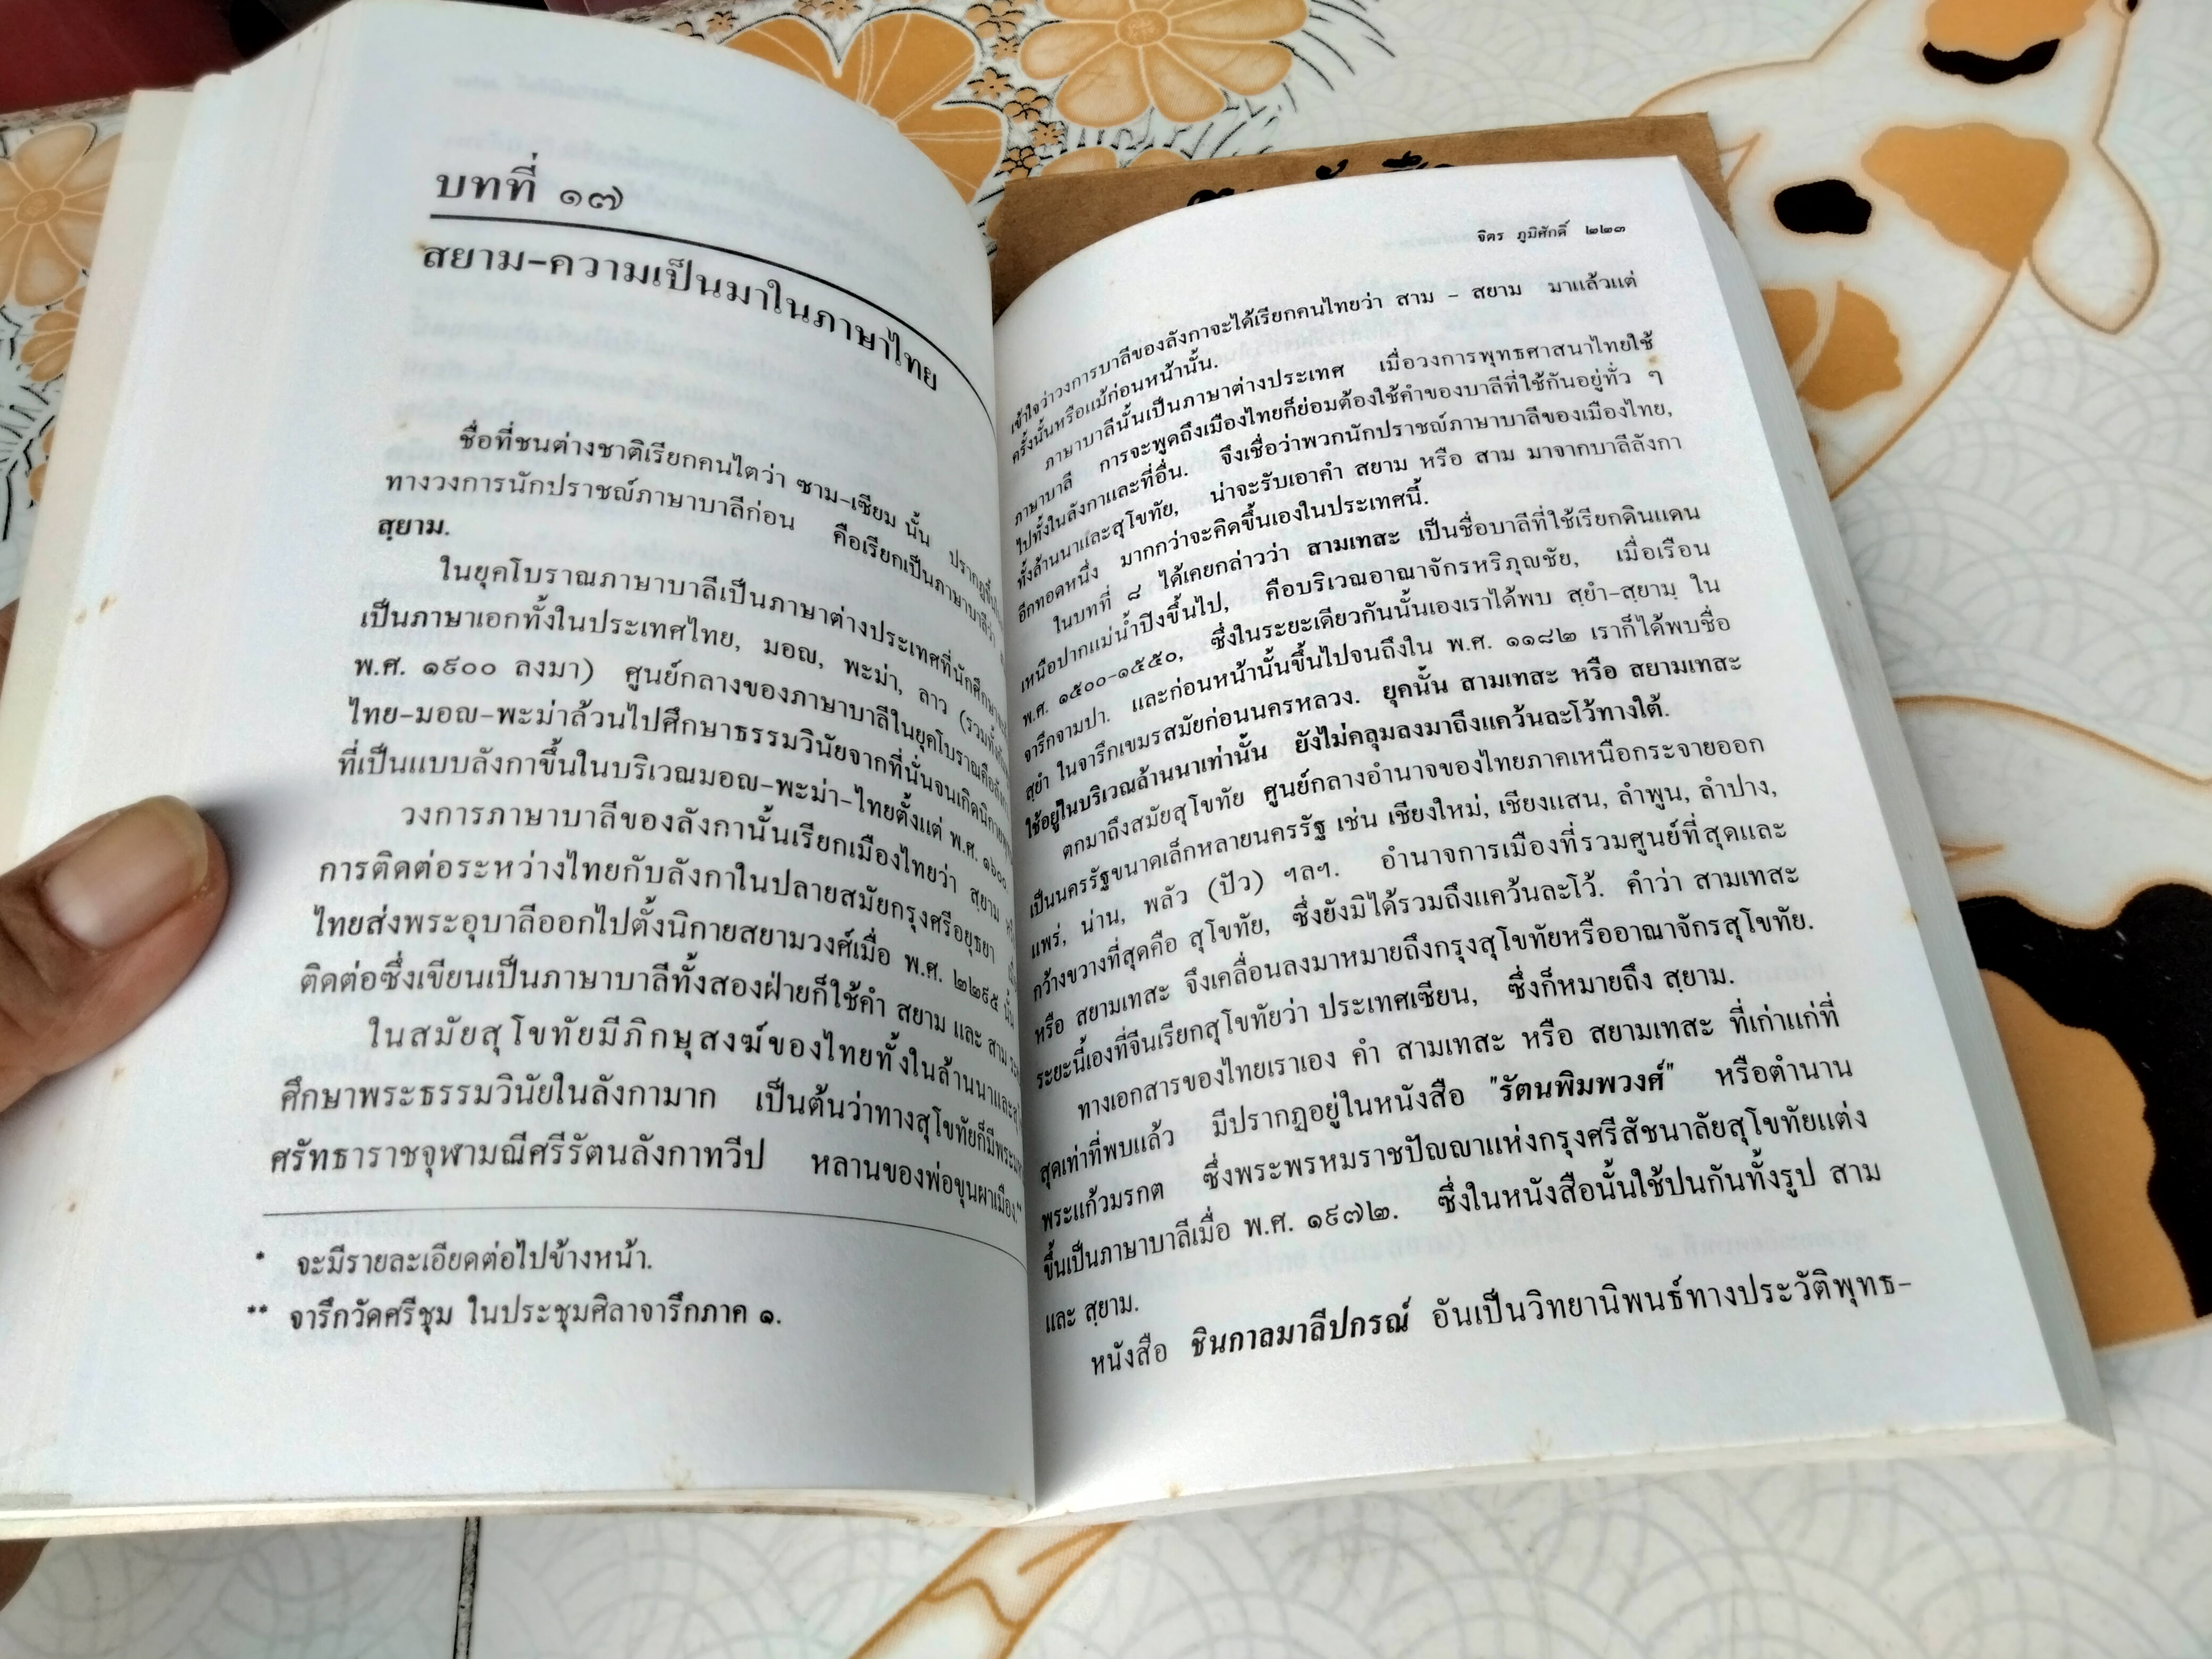 บทที่ ๑๗
สยาม-ความเป็นมาในภาษาไทย
ชื่อที่ชนต่างชาติเรียกคนไตว่า ซาม-เซียม นั้น
ทางวงการนักปราชญ์ภาษาบาลีก่อน คือเรียกเป็นภาษาบาลีว่า
สฺยาม.
ในยุคโบราณภาษาบาลีเป็นภาษาต่างประเทศที่นักศึกษา
เป็นภาษาเอกทั้งในประเทศไทย, มอญ, พะม่า, ลาว
พ.ศ. ๑๙๐๐ ลงมา) ศูนย์กลางของภาษาบาลีในยุคโบราณคือ
ไทย-มอญ-พะม่าล้วนไปศึกษาธรรมวินัยจากที่นั่นจนเกิดนิกาย
ที่เป็นแบบลังกาขึ้นในบริเวณมอญ-พะม่า-ไทยตั้งแต่ พ.ศ.
วงการภาษาบาลีของลังกานั้นเรียกเมืองไทยว่า สฺยาม
การติดต่อระหว่างไทยกับลังกาในปลายสมัยกรุงศรีอยุธยา
ไทยส่งพระอุบาลีออกไปตั้งนิกายสยามวงศ์เมื่อ พ.ศ. ๒๒๙๕ นั้น
ติดต่อซึ่งเขียนเป็นภาษาบาลีทั้งสองฝ่ายก็ใช้คำ สฺยาม และ สาม
ในสมัยสุโขทัยมีภิกษุสงฆ์ของไทยทั้งในล้านนาและ
ศึกษาพระธรรมวินัยในลังกามาก เป็นต้นว่าทางสุโขทัยก็มี
ศรัทธาราชจุฬามณีศรีรัตนลังกาทวีป หลานของพ่อขุนผาเมือง.**
* จะมีรายละเอียดต่อไปข้างหน้า.
** จารึกวัดศรีชุม ในประชุมศิลาจารึกภาค ๑.
จิตร ภูมิศักดิ์ ๒๒๓
เข้าใจว่าวงการบาลีของลังกาจะได้เรียกคนไทยว่า สาม - สยาม มาแล้วแต่
ครั้งนั้นหรือแม้ก่อนหน้านั้น.
ภาษาบาลีนั้นเป็นภาษาต่างประเทศ เมื่อวงการพุทธศาสนาไทยใช้
ภาษาบาลี การจะพูดถึงเมืองไทยก็ย่อมต้องใช้คำของบาลีที่ใช้กันอยู่ทั่ว ๆ
ไปทั้งในลังกาและที่อื่น. จึงเชื่อว่าพวกนักปราชญ์ภาษาบาลีของเมืองไทย,
ทั้งล้านนาและสุโขทัย, น่าจะรับเอาคำ สยาม หรือ สาม มาจากบาลีลังกา
อีกทอดหนึ่ง มากกว่าจะคิดขึ้นเองในประเทศนี้.
ในบทที่ ๘ ได้เคยกล่าวว่า สามเทสะ เป็นชื่อบาลีที่ใช้เรียกดินแดน
เหนือปากแม่น้ำปิงขึ้นไป, คือบริเวณอาณาจักรหริภุญชัย, เมื่อเรือน
พ.ศ. ๑๕๐๐-๑๕๕๐, ซึ่งในระยะเดียวกันนั้นเองเราได้พบ สฺยำ-สฺยามฺ ใน
จารึกจามปา. และก่อนหน้านั้นขึ้นไปจนถึงใน พ.ศ. ๑๑๘๒ เราก็ได้พบชื่อ
สฺยำ ในจารึกเขมรสมัยก่อนนครหลวง. ยุคนั้น สามเทสะ หรือ สยามเทสะ
ใช้อยู่ในบริเวณล้านนาเท่านั้น ยังไม่คลุมลงมาถึงแคว้นละโว้ทางใต้.
ตกมาถึงสมัยสุโขทัย ศูนย์กลางอำนาจของไทยภาคเหนือกระจายออก
เป็นนครรัฐขนาดเล็กหลายนครรัฐ เช่น เชียงใหม่, เชียงแสน, ลำพูน, ลำปาง,
แพร่, น่าน, พลัว (ปัว) ฯลฯ. อำนาจการเมืองที่รวมศูนย์ที่สุดและ
กว้างขวางที่สุดคือ สุโขทัย, ซึ่งยังมิได้รวมถึงแคว้นละโว้. คำว่า สามเทสะ
หรือ สยามเทสะ จึงเคลื่อนลงมาหมายถึงกรุงสุโขทัยหรืออาณาจักรสุโขทัย.
ระยะนี้เองที่จีนเรียกสุโขทัยว่า ประเทศเซียน, ซึ่งก็หมายถึง สฺยาม.
ทางเอกสารของไทยเราเอง คำ สามเทสะ หรือ สยามเทสะ ที่เก่าแก่ที่
สุดเท่าที่พบแล้ว มีปรากฏอยู่ในหนังสือ "รัตนพิมพวงศ์" หรือตำนาน
พระแก้วมรกต ซึ่งพระพรหมราชปัญญาแห่งกรุงศรีสัชนาลัยสุโขทัยแต่ง
ขึ้นเป็นภาษาบาลีเมื่อ พ.ศ. ๑๙๗๒. ซึ่งในหนังสือนั้นใช้ปนกันทั้งรูป สาม
และ สฺยาม.
หนังสือ ชินกาลมาลีปกรณ์ อันเป็นวิทยานิพนธ์ทางประวัติพุทธ-